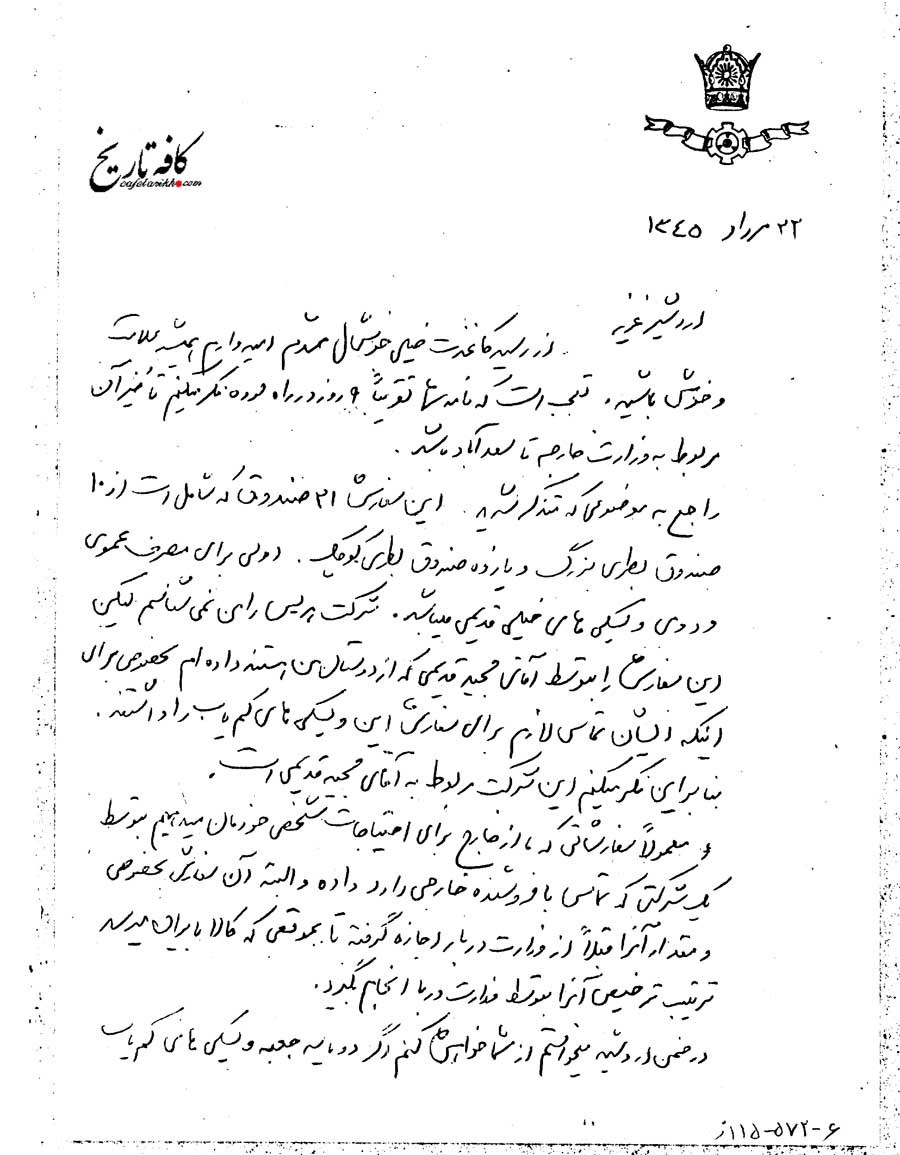 کافه تاریخ
cafetarikh.com
۲۲ مرداد ۱۳۴۵
اردشیر عزیز
از رسیدن کاغذت خیلی خوشحال شدم امیدوارم همیشه سلامت
و خوش باشید. تعجب است که نامه شما تقریباً ۹ روز در راه بوده فکر میکنم تأخیر آن
مربوط به وزارت خارجه تا سعدآباد باشد.
راجع به موضوعی که متذکر شدید. این سفارش ۲۱ صندوق که شامل است از ۱۰
صندوق بطری بزرگ و یازده صندوق بطری کوچک. اولی برای مصرف عمومی
و دومی ویسکی های خیلی قدیمی میباشد. شرکت پریس را من نمی شناسم لیکن
این سفارش را بتوسط آقای مجید قدیمی که از دوستان من هستند داده ام بخصوص برای
اینکه ایشان تماس لازم برای سفارش این ویسکی های کم یاب را داشتند.
بنابراین فکر میکنم این شرکت مربوط به آقای مجید قدیمی است.
معمولاً سفارشاتی که ما از خارج برای احتیاجات شخصی خودمان میدهیم بتوسط
یک شرکتی که تماس با فروشنده خارجی دارد داده و البته آن سفارش بخصوص
و مقدار آنرا قبلاً از وزارت دربار اجازه گرفته تا بموقعی که کالا بایران میرسد
ترتیب ترخیص آنرا بتوسط وزارت دربار انجام بگیرد.
در ضمن اردشیر میخواستم از شما خواهش کنم اگر دو یا سه جعبه ویسکی های کم یاب
۶-۵۷۲-۱۱۵ز